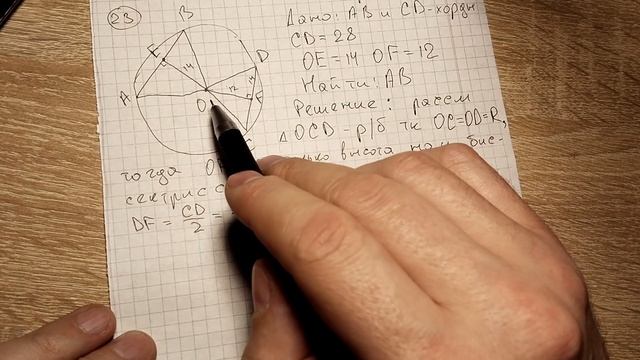 23
B
E
14
D
14
A
12
F
O
Дано: AB и CD-хорды
CD = 28
OE = 14 OF = 12
Найти: AB
Решение: рассм
△ OCD - р/б тк OC=OD=R,
высота
тогда
DF = CD/2 =